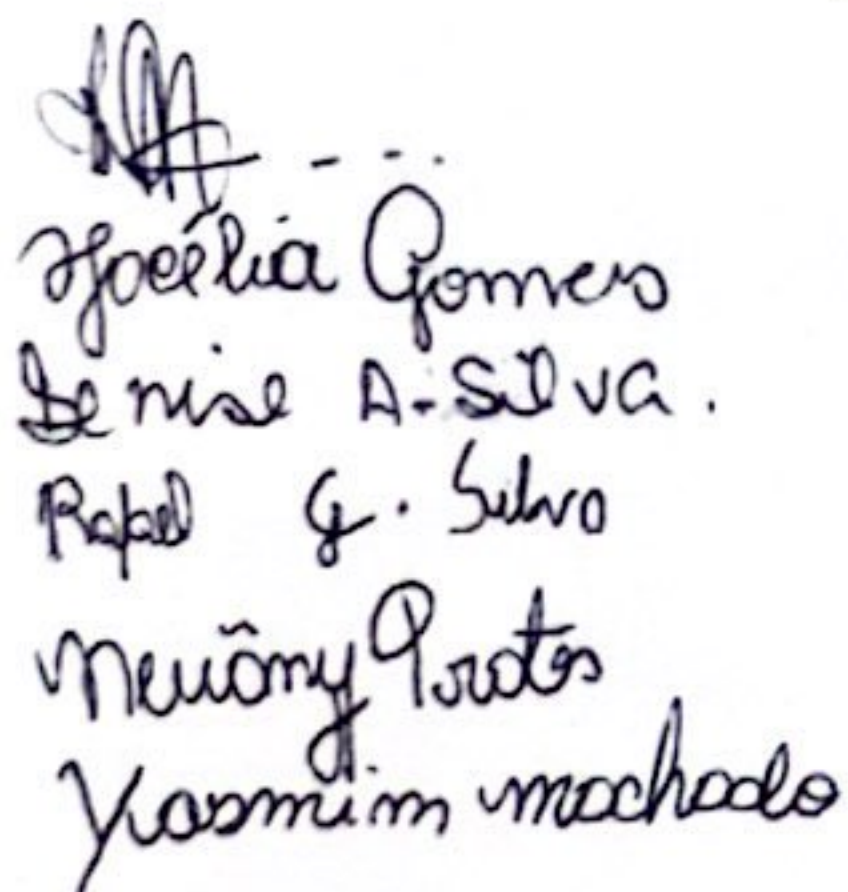 Jocélia Gomes
Denise A. Silva.
Rafael G. Silva
Prates
Yasmim machado